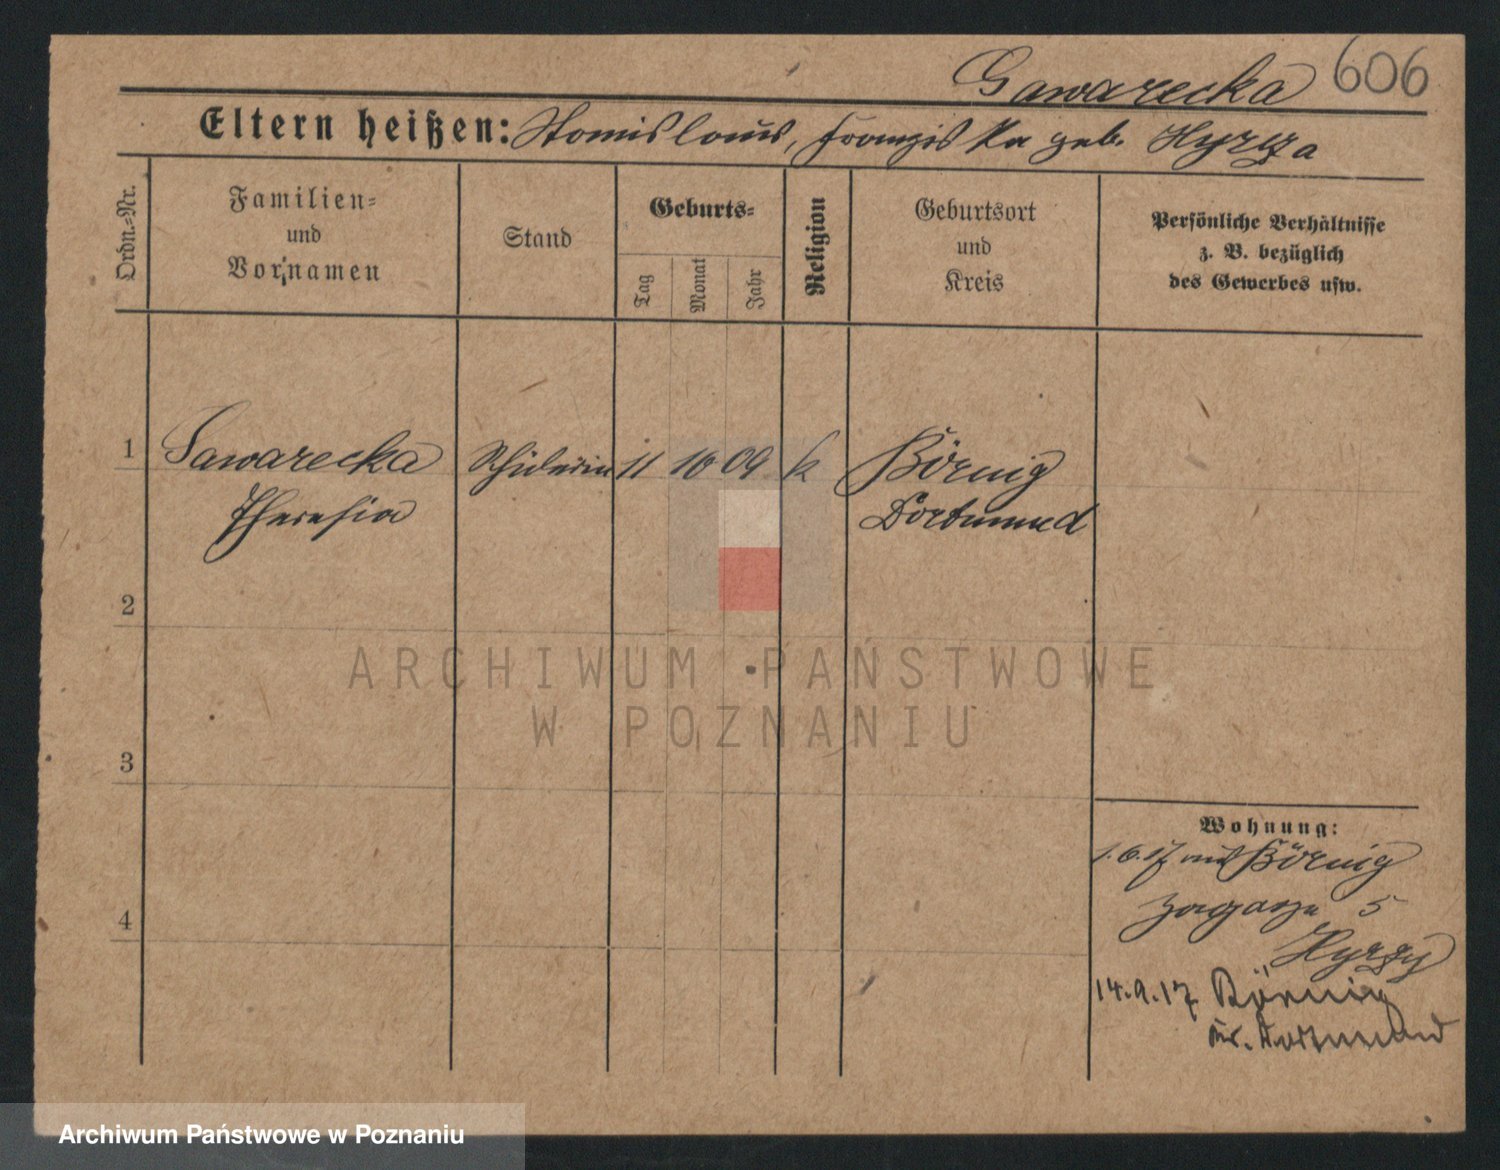 Gawarecka 606
Eltern heißen: Stanislaus, Franziska geb. Hyrcza
Ordn.-Nr.
Familien-
und
Vornamen
Stand
Geburts-
Tag
Monat
Jahr
Religion
Geburtsort
und
Kreis
Persönliche Verhältnisse
z. B. bezüglich
des Gewerbes usw.
1 Gawarecka Schülerin 11 10 04 k Börnig
Theresia Dortmund
2
3
4
ARCHIWUM PAŃSTWOWE
W POZNANIU
Wohnung:
1.6.17 aus Börnig
5
14.9.17 Börnig
Kr. Dortmund
Archiwum Państwowe w Poznaniu